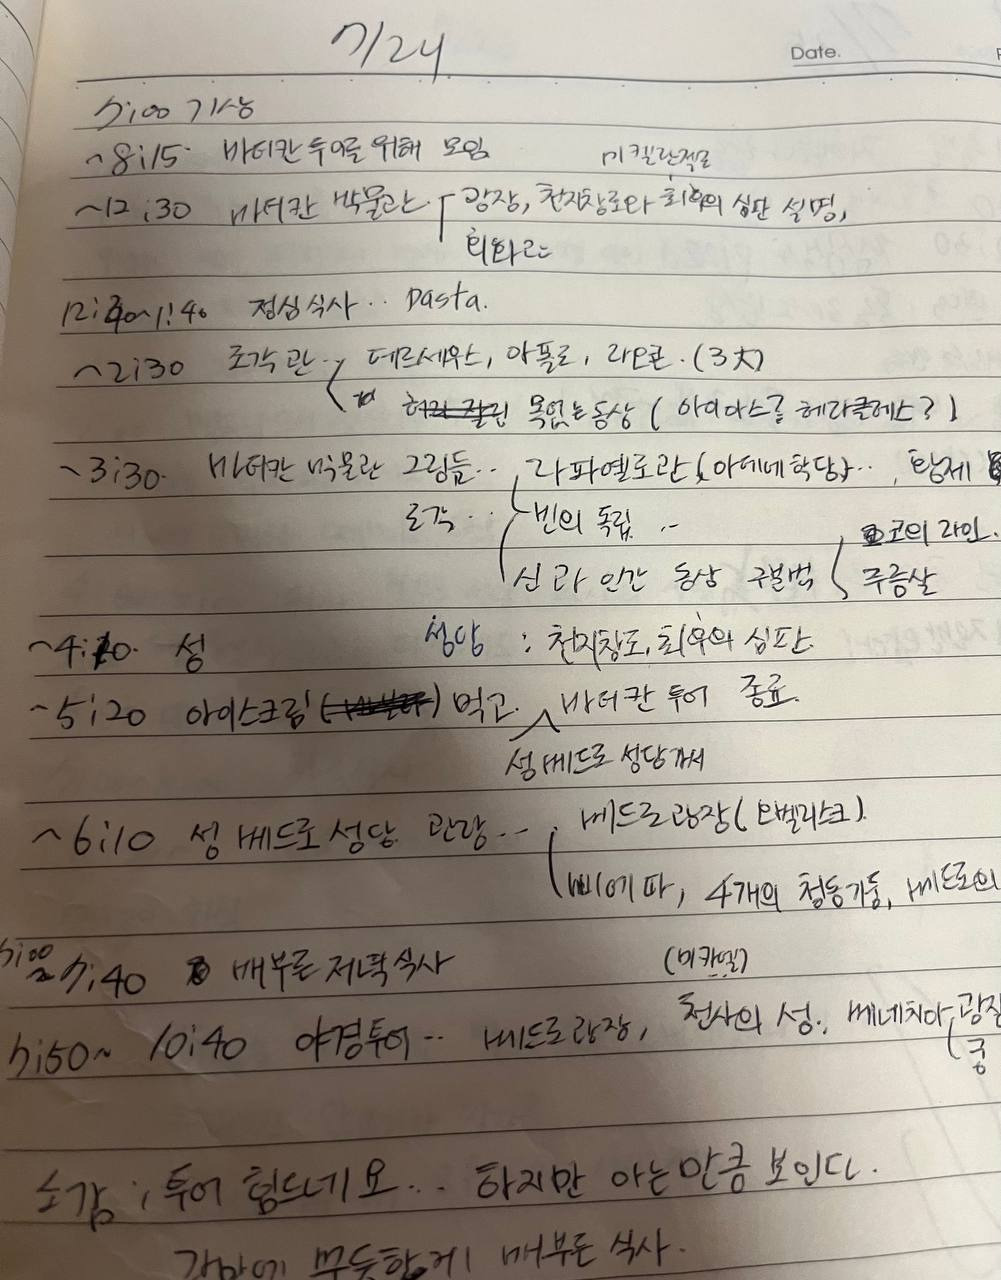 7/24
Date.
7:00 기상
~8:15 바티칸 투어를 위해 모임
미켈란젤로
~12:30 바티칸 박물관 광장, 천지창조와 최후의 심판 설명,
회화관
12:40~1:40 점심식사.. pasta.
~2:30 조각관 페르세우스, 아폴로, 라오콘. (3大)
목없는 동상 (아이아스? 헤라클레스?)
~3:30. 바티칸 박물관 그림들.. 라파엘로관 (아테네 학당).. , 황제
조각.. 빈의 독립 ..
코의 라인.
신과 인간 동상 구별법 주름살
~4:10. 성 성당 : 천지창조, 최후의 심판.
~5:20 아이스크림 먹고. 바티칸 투어 종료.
성 베드로 성당 가서
~6:10 성 베드로 성당 관람... 베드로 광장 (오벨리스크).
삐에따, 4개의 청동기둥, 베드로의
7:00 ~ 7:40 배부른 저녁식사
(미카엘)
7:50~ 10:40 야경투어.. 베드로 광장, 천사의 성, 베네치아 광장
궁
소감 : 투어 힘드네요... 하지만 아는만큼 보인다.
간만에 푸둣함께 배부른 식사.